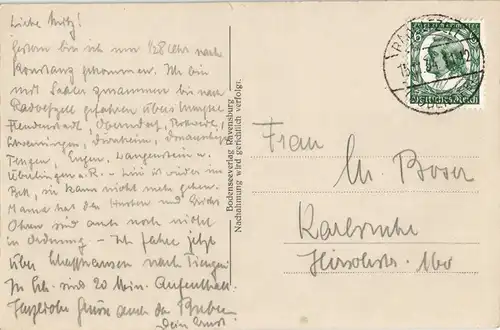 Liebe Mutz!
Gestern bin ich um 1/28 Uhr nach
Konstanz gekommen. Ich bin
mit Saaler zusammen bis nach
Radolfzell gefahren über
Freudenstadt, Oberndorf, Rottweil,
Schwenningen, Dürrheim,
Tengen, Engen, Langenstein u.
Überlingen a. R. – ist wieder im
Bett, sie kann nicht mehr gehen.
Mama hat den Husten und
Ohren sind auch noch nicht
in Ordnung – Ich fahre jetzt
über Schaffhausen nach
In Sch. sind 20 Min. Aufenthalt.
Herzliche Grüße auch an
Dein Ernst.
Bodenseeverlag Ravensburg
Nachahmung wird gerichtlich verfolgt.
6
Deutsches Reich
Frau
M. Boser
Karlsruhe
Hirschstr. 160